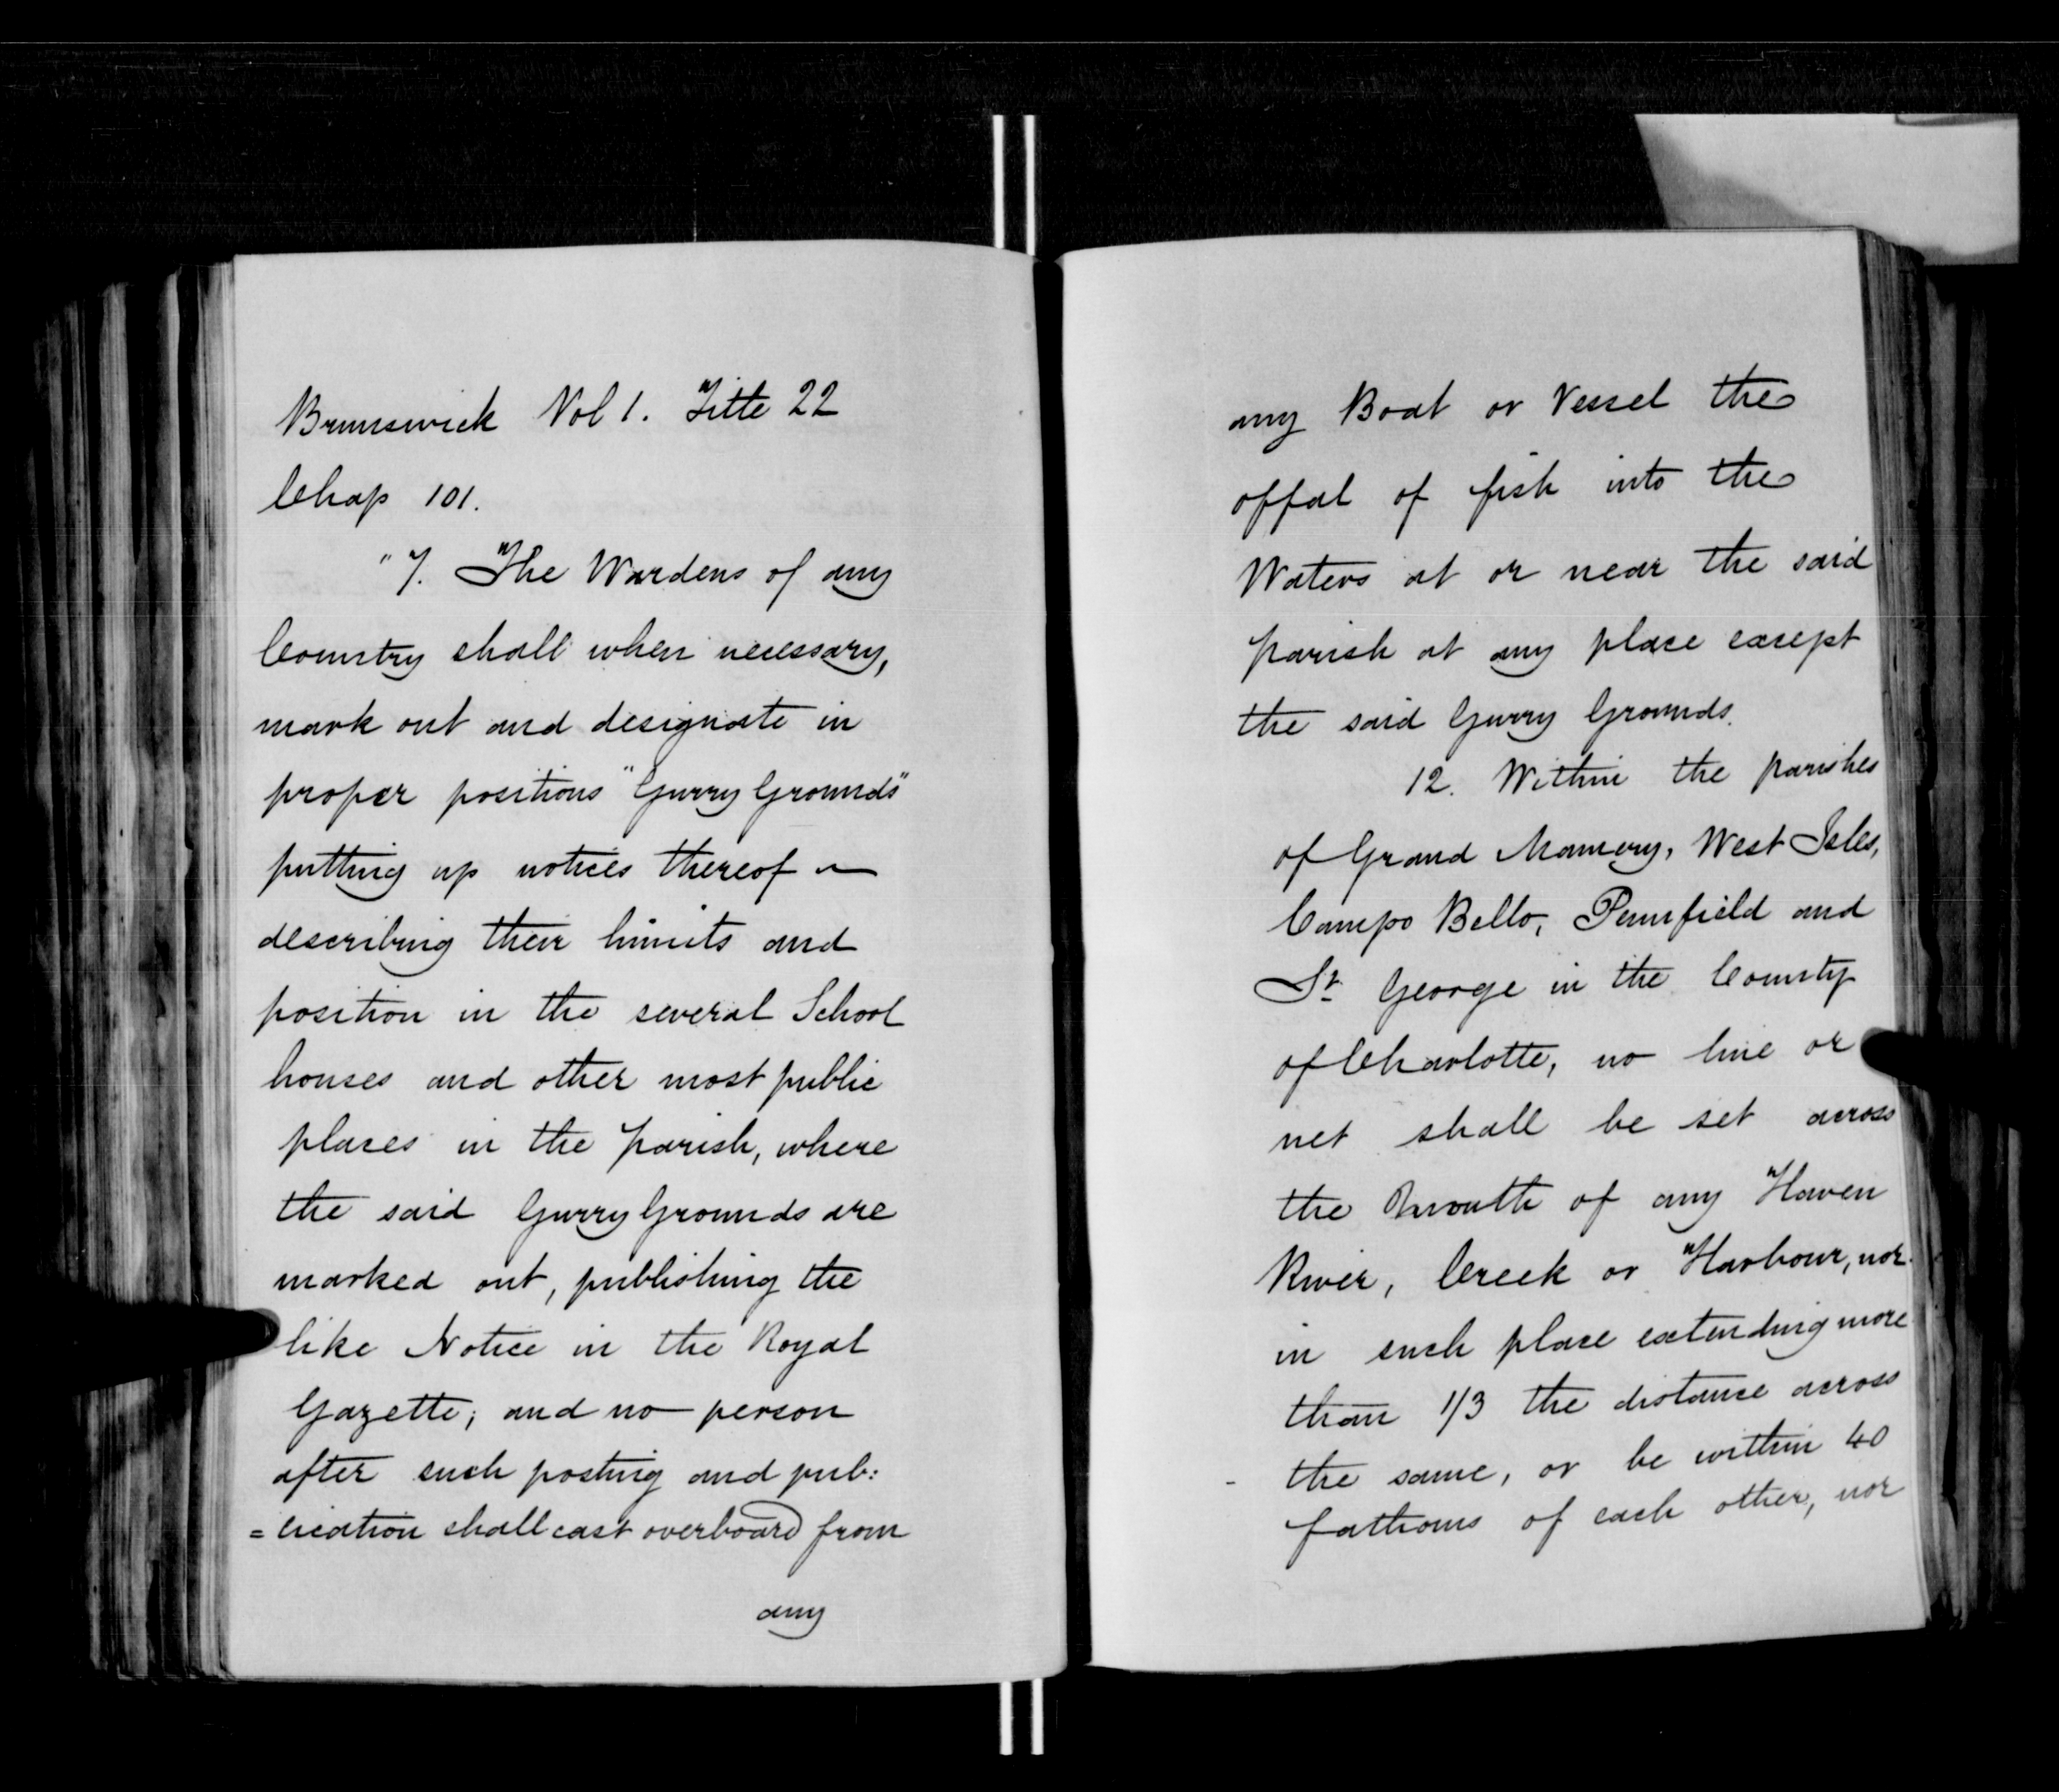 Brunswick Vol 1. Title 22
Chap 101.
"7. The Wardens of any
Country shall when necessary,
mark out and designate in
proper positions "Gurry Grounds"
putting up notices thereof
describing their limits and
position in the several School
houses and other most public
places in the parish, where
the said Gurry Grounds are
marked out, publishing the
like Notice in the Royal
Gazette; and no person
after such posting and pub:
=lication shall cast overboard from
any
any Boat or Vessel the
offal of fish into the
Waters at or near the said
parish at any place except
the said Gurry Grounds.
12. Within the parishes
of Grand Manony, West Isles,
Campo Bello, Pennfield and
St. George in the County
of Charlotte, no line or
net shall be set across
the mouth of any Haven
River, Creek or Harbour, nor
in such place extending more
than 1/3 the distance across
the same, or be within 40
fathoms of each other, nor